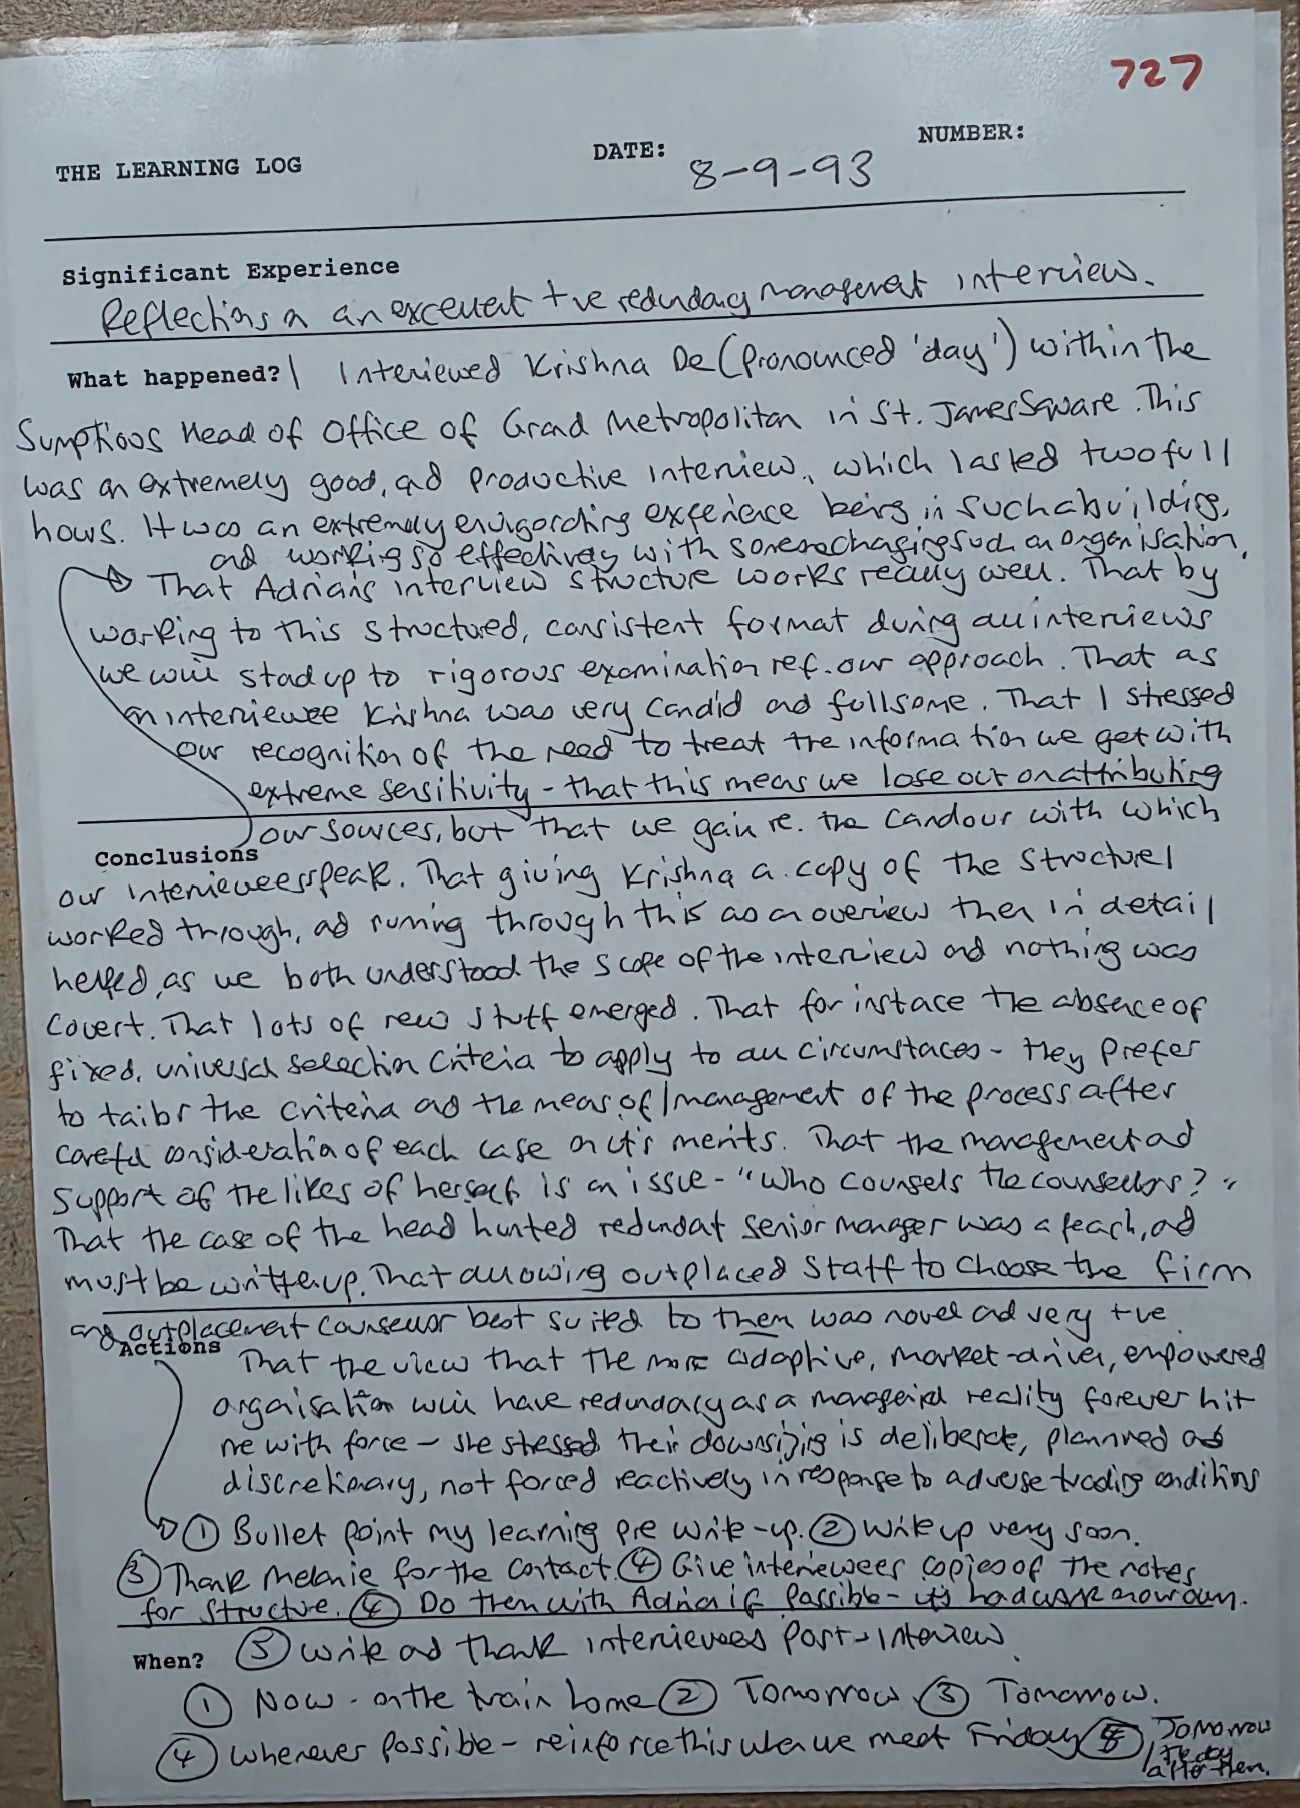 727
THE LEARNING LOG DATE: 8-9-93 NUMBER:
Significant Experience
Reflections on an excellent +ve redundancy management interview.
What happened? I Interviewed Krishna De (pronounced 'day') within the
Sumptious Head of Office of Grand Metropolitan in St. James Square. This
was an extremely good, and productive interview, which lasted two full
hours. It was an extremely envigorating experience being in such a building,
and working so effectively with someone changing such an organisation.
That Adrian's interview structure works really well. That by
working to this structured, consistent format during all interviews
we will stand up to rigorous examination ref. our approach. That as
an interviewee Krishna was very candid and fullsome. That I stressed
our recognition of the need to treat the information we get with
extreme sensitivity - that this means we lose out on attributing
our sources, but that we gain re. the candour with which
Conclusions
our interviewees speak. That giving Krishna a copy of the structure I
worked through, and running through this as an overview then in detail
helped, as we both understood the scope of the interview and nothing was
covert. That lots of new stuff emerged. That for instance the absence of
fixed, universal selection criteria to apply to all circumstances - they prefer
to tailor the criteria and the means of/management of the process after
careful consideration of each case on it's merits. That the management and
support of the likes of herself is an issue - "Who counsels the counsellors?"
That the case of the head hunted redundant senior manager was a peach, and
must be written up. That allowing outplaced staff to choose the firm
and outplacement counsellor best suited to them was novel and very +ve.
Actions
That the view that the more adaptive, market-driven, empowered
organisation will have redundancy as a managerial reality forever hit
me with force - she stressed their downsizing is deliberate, planned and
discretionary, not forced reactively in response to adverse trading conditions
① Bullet point my learning pre write-up. ② Write up very soon.
③ Thank Melanie for the contact. ④ Give interviewees copies of the notes
for structure. ④ Do them with Adrian if possible - it's hard work on our own.
When? ⑤ Write and thank interviewees post-interview.
① Now - on the train home ② Tomorrow ③ Tomorrow.
④ Whenever possible - reinforce this when we meet Friday ⑤ Tomorrow
/the day
after then.